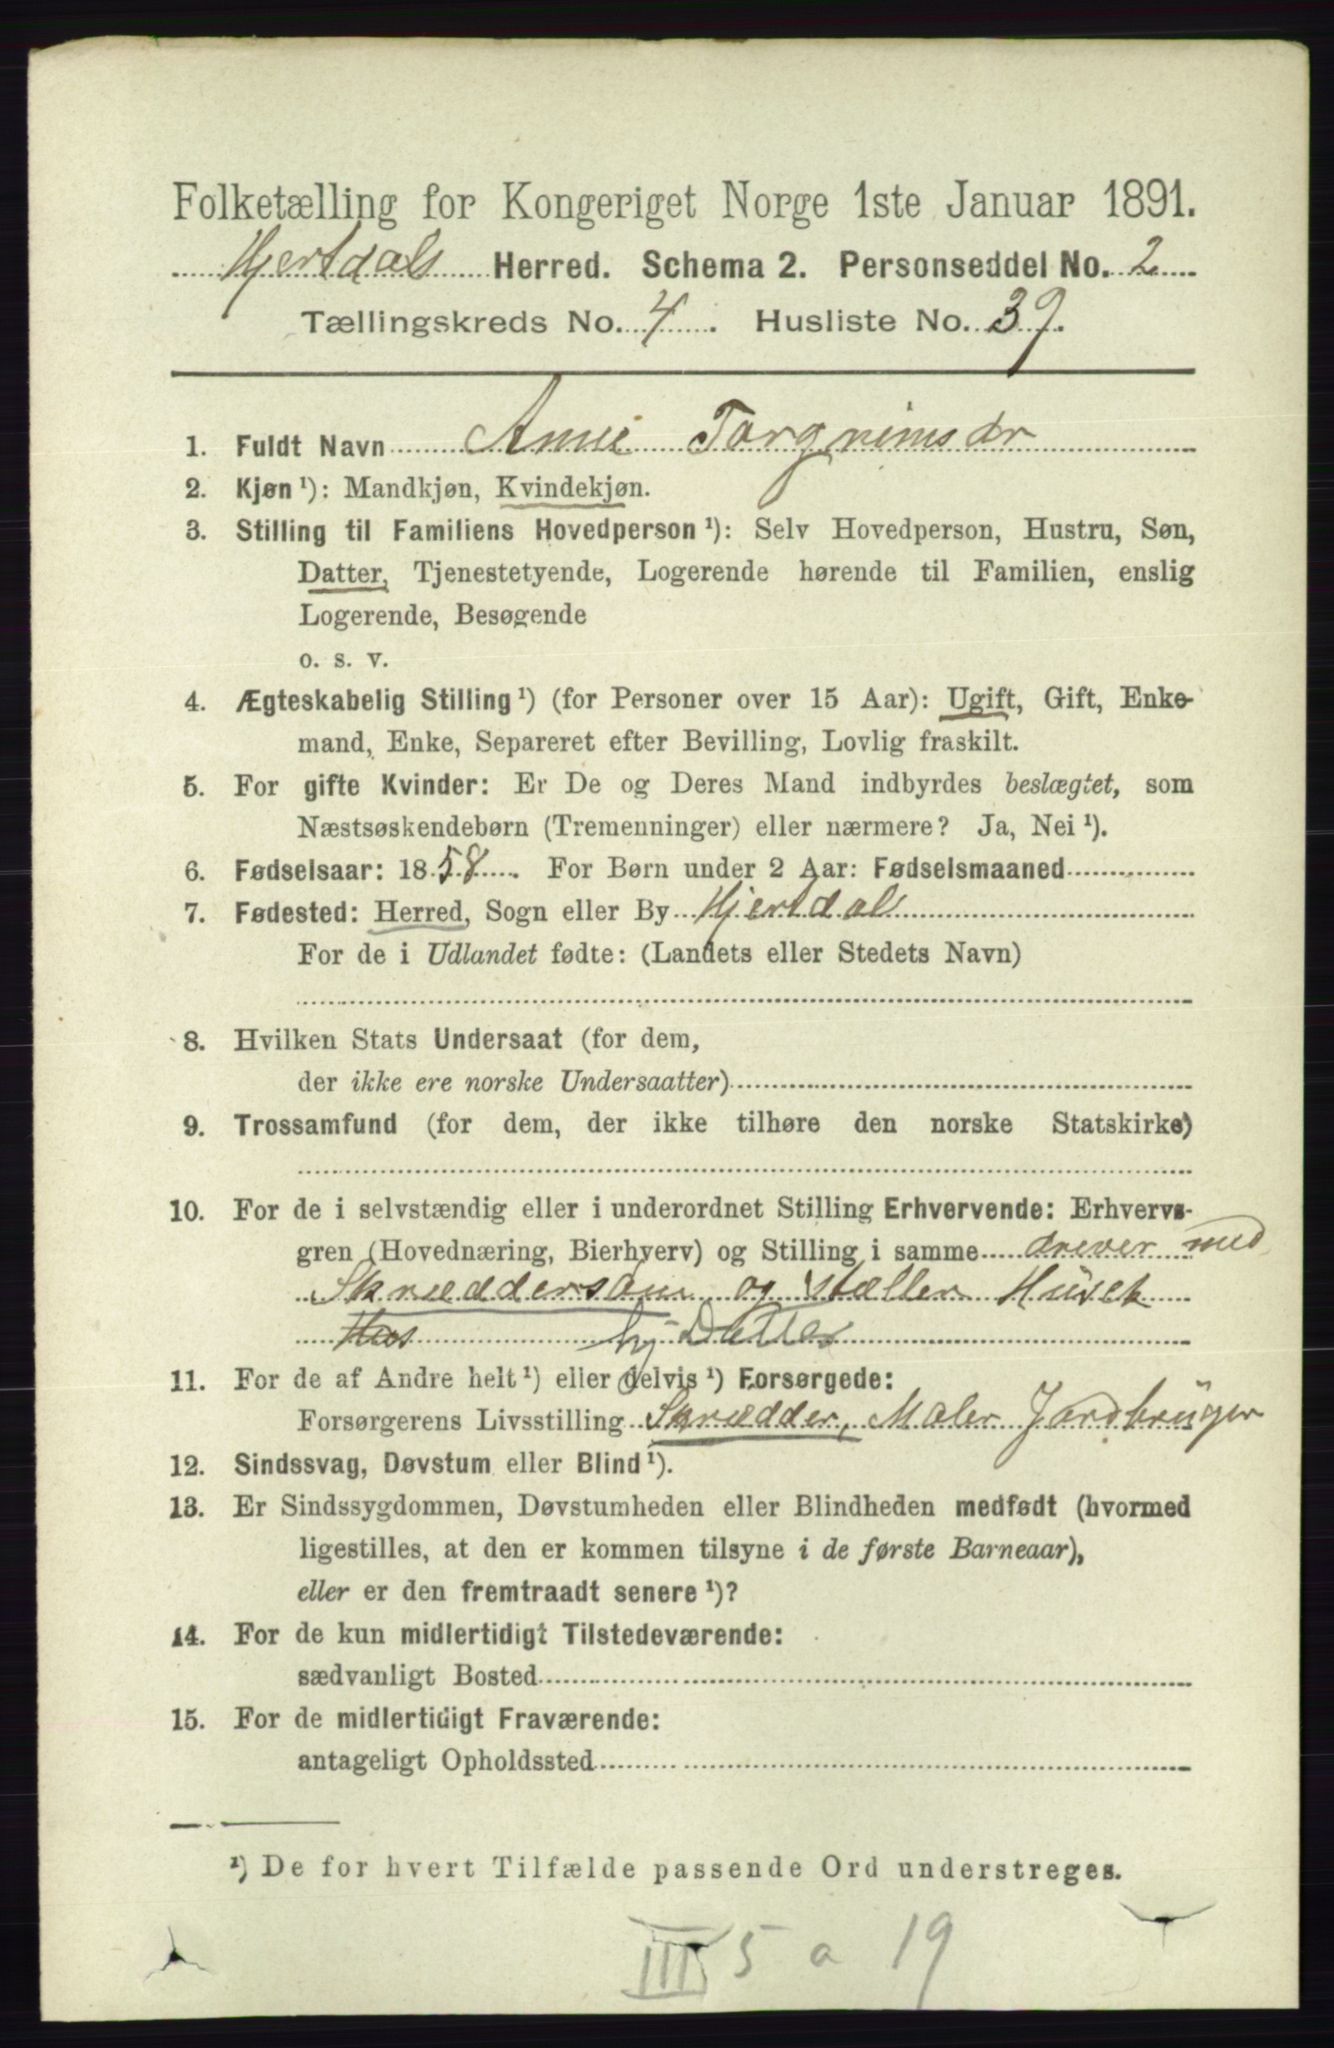 Folketælling for Kongeriget Norge 1ste Januar 1891.
Hjertdals Herred. Schema 2. Personseddel No. 2
Tællingskreds No. 4. Husliste No. 39.
1. Fuldt Navn Anne Torgrimsdr
2. Kjøn ¹): Mandkjøn, Kvindekjøn.
3. Stilling til Familiens Hovedperson ¹): Selv Hovedperson, Hustru, Søn,
Datter, Tjenestetyende, Logerende hørende til Familien, enslig
Logerende, Besøgende
o. s. v.
4. Ægteskabelig Stilling ¹) (for Personer over 15 Aar): Ugift, Gift, Enke-
mand, Enke, Separeret efter Bevilling, Lovlig fraskilt.
5. For gifte Kvinder: Er De og Deres Mand indbyrdes beslægtet, som
Næstsøskendebørn (Tremenninger) eller nærmere? Ja, Nei ¹).
6. Fødselsaar: 1858. For Børn under 2 Aar: Fødselsmaaned
7. Fødested: Herred, Sogn eller By Hjertdal
For de i Udlandet fødte: (Landets eller Stedets Navn)
8. Hvilken Stats Undersaat (for dem,
der ikke ere norske Undersaatter)
9. Trossamfund (for dem, der ikke tilhøre den norske Statskirke)
10. For de i selvstændig eller i underordnet Stilling Erhvervende: Erhvervs-
gren (Hovednæring, Bierhverv) og Stilling i samme drever med
Skræddersøm og stæller Huset
Hus hj Datter
11. For de af Andre helt ¹) eller delvis ¹) Forsørgede:
Forsørgerens Livsstilling Skrædder, Maler Jordbrüger
12. Sindssvag, Døvstum eller Blind ¹).
13. Er Sindssygdommen, Døvstumheden eller Blindheden medfødt (hvormed
ligestilles, at den er kommen tilsyne i de første Barneaar),
eller er den fremtraadt senere ¹)?
14. For de kun midlertidigt Tilstedeværende:
sædvanligt Bosted
15. For de midlertidigt Fraværende:
antageligt Opholdssted
¹) De for hvert Tilfælde passende Ord understreges.
III 5 a 19